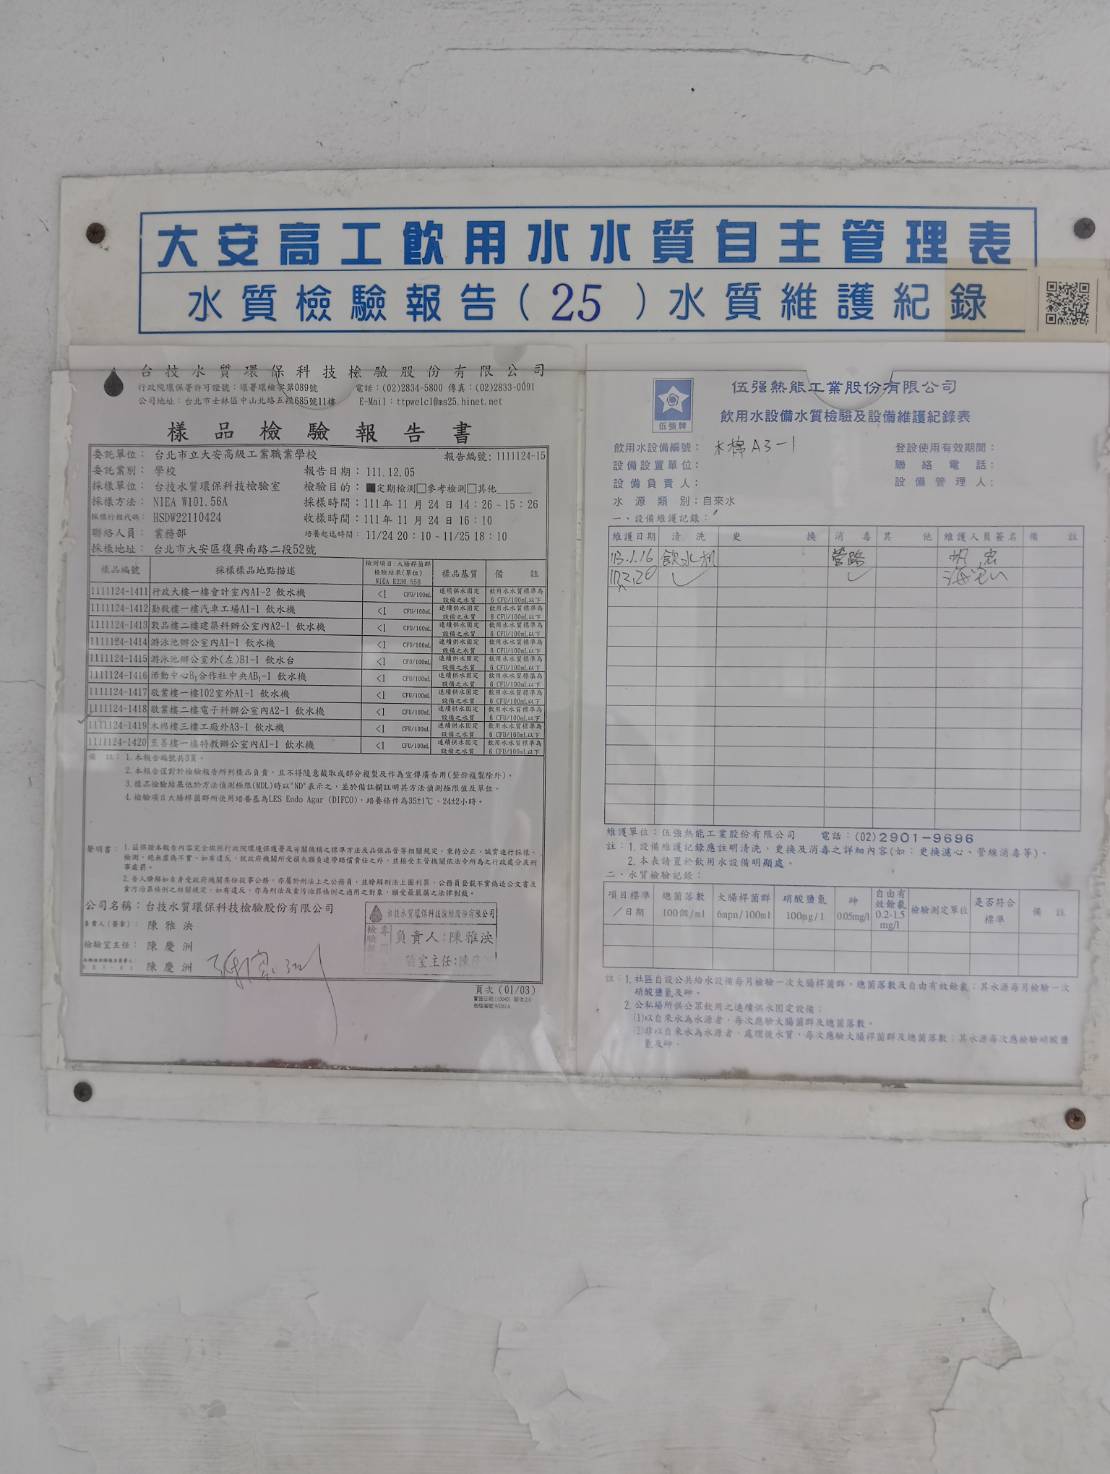 大安高工飲用水水質自主管理表
水質檢驗報告( 25 )水質維護紀錄
台技水質環保科技檢驗股份有限公司
行政院環保署許可證號：環署環檢字第089號 電話：(02)2834-5800 傳真：(02)2833-0091
公司地址：台北市士林區中山北路五段685號11樓 E-Mail：ttpwelcl@ms25.hinet.net
樣品檢驗報告書
委託單位： 台北市立大安高級工業職業學校 報告編號：1111124-15
委託業別： 學校 報告日期：111.12.05
採樣單位： 台技水質環保科技檢驗室 檢驗目的：■定期檢測□參考檢測□其他
採樣方法： NIEA W101.56A 採樣時間：111 年 11 月 24 日 14：26 - 15：26
採樣行程代碼： HSDW22110424 收樣時間：111 年 11 月 24 日 16：10
聯絡人員： 業務部 培養起迄時間： 11/24 20：10 - 11/25 18：10
採樣地址： 台北市大安區復興南路二段52號
樣品編號 採樣樣品地點描述 檢測項目：大腸桿菌群 檢驗結果(單位) NIEA E230.55B 樣品基質 備 註
1111124-1411 行政大樓一樓會計室內A1-2 飲水機 <1 CFU/100mL 連續供水固定設備之水質 飲用水水質標準為6 CFU/100mL以下
1111124-1412 勤毅樓一樓汽車工場A1-1 飲水機 <1 CFU/100mL 連續供水固定設備之水質 飲用水水質標準為6 CFU/100mL以下
1111124-1413 敦品樓二樓建築科辦公室內A2-1 飲水機 <1 CFU/100mL 連續供水固定設備之水質 飲用水水質標準為6 CFU/100mL以下
1111124-1414 游泳池辦公室內A1-1 飲水機 <1 CFU/100mL 連續供水固定設備之水質 飲用水水質標準為6 CFU/100mL以下
1111124-1415 游泳池辦公室外(左)B1-1 飲水台 <1 CFU/100mL 連續供水固定設備之水質 飲用水水質標準為6 CFU/100mL以下
1111124-1416 活動中心B1合作社中央AB1-1 飲水機 <1 CFU/100mL 連續供水固定設備之水質 飲用水水質標準為6 CFU/100mL以下
1111124-1417 敬業樓一樓102室外A1-1 飲水機 <1 CFU/100mL 連續供水固定設備之水質 飲用水水質標準為6 CFU/100mL以下
1111124-1418 敬業樓二樓電子科辦公室內A2-1 飲水機 <1 CFU/100mL 連續供水固定設備之水質 飲用水水質標準為6 CFU/100mL以下
1111124-1419 木棉樓三樓工廠外A3-1 飲水機 <1 CFU/100mL 連續供水固定設備之水質 飲用水水質標準為6 CFU/100mL以下
1111124-1420 至善樓一樓特教辦公室內A1-1 飲水機 <1 CFU/100mL 連續供水固定設備之水質 飲用水水質標準為6 CFU/100mL以下
備 註：1.本報告編號共3頁。
2.本報告僅對於檢驗報告所列樣品負責，且不得隨意截取或部分複製及作為宣傳廣告用(整份複製除外)。
3.樣品檢驗結果低於方法偵測極限(MDL)時以"ND"表示之，並於備註欄註明其方法偵測極限值及單位。
4.檢驗項目大腸桿菌群所使用培養基為LES Endo Agar (DIFCO)，培養條件為35±1℃、24±2小時。
聲明書：
公司名稱：台技水質環保科技檢驗股份有限公司
負責人(簽章)： 陳雅泱
檢驗室主任： 陳慶洲
陳慶洲
台技水質環保科技檢驗股份有限公司
負責人：陳雅泱
頁次 (01/03)
伍強牌
伍强熱能工業股份有限公司
飲用水設備水質檢驗及設備維護紀錄表
飲用水設備編號： 木棉 A3-1 登設使用有效期間：
設備設置單位： 聯絡電話：
設備負責人： 設備管理人：
水源類別：自來水
一、設備維護記錄：
維護日期 清洗 更換 消毒 其他 維護人員簽名 備註
113.1.16 飲水机 管路
維護單位：伍强熱能工業股份有限公司 電話：(02)2901-9696
註：1.設備維護記錄應註明清洗、更換及消毒之詳細內容(如：更換濾心、管線消毒等)。
2.本表請置於飲用水設備明顯處。
二、水質檢驗記錄：
項目標準／日期 總菌落數 100個/ml 大腸桿菌群 6mpn/100ml 硝酸鹽氮 100µg/l 砷 0.05mg/l 自由有效餘氯 0.2-1.5 mg/l 檢驗測定單位 是否符合標準 備註
註：1.社區自設公共給水設備每月檢驗一次大腸桿菌群、總菌落數及自由有效餘氯；其水源每月檢驗一次
硝酸鹽氮及砷。
2.公私場所供公眾飲用之連續供水固定設備：
(1)以自來水為水源者，每次應驗大腸桿菌群及總菌落數。
(2)非以自來水為水源者，處理後水質，每次應驗大腸桿菌群及總菌落數；其水源每次應檢驗硝酸鹽
氮及砷。